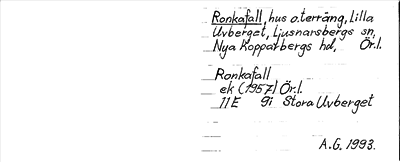 Ronkafall, hus o. terräng, Lilla
Uvberget, Ljusnarsbergs sn,
Nya Kopparbergs hd, Ör.l.
Ronkafall
ek (1957) Ör.l.
11E 9i Stora Uvberget
A.G. 1993.